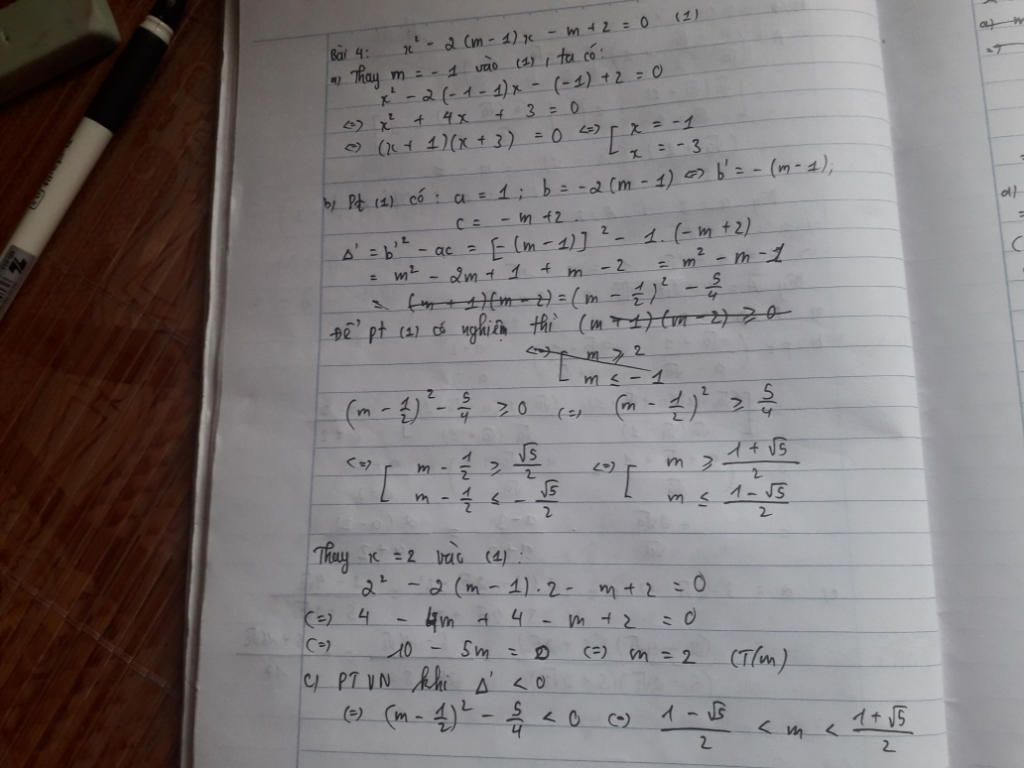 Bài 4: x² - 2(m-1)x - m + 2 = 0 (1)
a) Thay m = -1 vào (1), ta có:
x² - 2(-1-1)x - (-1) + 2 = 0
<=> x² + 4x + 3 = 0
<=> (x+1)(x+3) = 0 <=> [ x = -1
x = -3
b) Pt (1) có: a = 1; b = -2(m-1) <=> b' = -(m-1);
c = -m+2
Δ' = b'² - ac = [-(m-1)]² - 1.(-m+2)
= m² - 2m + 1 + m - 2 = m² - m - 1
= (m+1)(m-2) = (m - 1/2)² - 5/4
Để pt (1) có nghiệm thì (m+1)(m-2) ≥ 0
<=> [ m ≥ 2
m ≤ -1
(m - 1/2)² - 5/4 ≥ 0 <=> (m - 1/2)² ≥ 5/4
<=> [ m - 1/2 ≥ √5/2 <=> [ m ≥ (1+√5)/2
m - 1/2 ≤ -√5/2 m ≤ (1-√5)/2
Thay x = 2 vào (1):
2² - 2(m-1).2 - m + 2 = 0
<=> 4 - 4m + 4 - m + 2 = 0
<=> 10 - 5m = 0 <=> m = 2 (T/m)
c) PTVN khi Δ' < 0
<=> (m - 1/2)² - 5/4 < 0 <=> (1-√5)/2 < m < (1+√5)/2